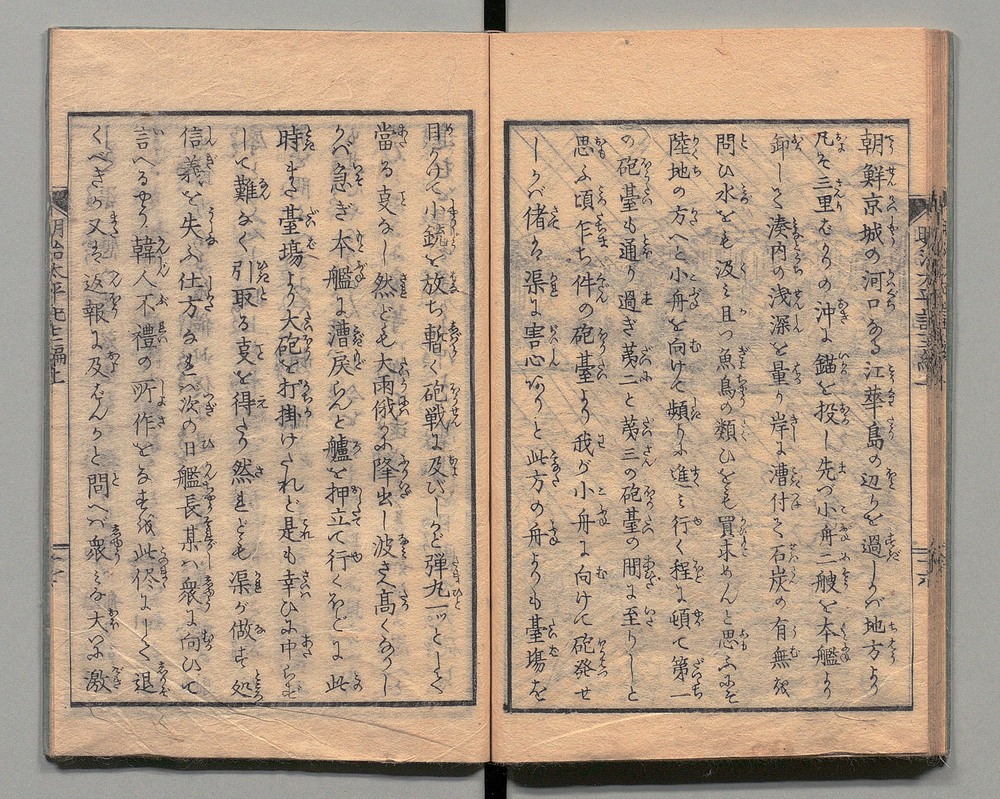 朝鮮京城の河口なる江華島の辺りを過しかバ地方より
凡そ三里むかりの沖に錨を投し先づ小舟二艘を本艦より
卸して湊内の浅深を量り岸に漕付て石炭の有無を
問ひ水をも汲ミ且つ魚鳥の類ひをも買求めんと思ふにぞ
陸地の方へと小舟を向けて頻りに進ミ行く程に頓て第一
の砲臺も通り過ぎ第二と第三の砲臺の間に至りしと
思ふ頃乍ち件の砲臺より我が小舟に向けて砲発せ
しかバ偖ハ渠に害心ありと此方の舟よりも臺塲を
目かけて小銃を放ち暫く砲戦に及びしかど弾丸一ッとして
當る事なし然ども大雨俄に降出し波さへ高くなりし
かバ急ぎ本艦に漕戻らんと艫を押立て行くほどに此
時また臺塲より大砲を打掛けたれど是も幸ひに中らず
して難なく引取る事を得たり然れども渠が做す処
信義を失ふ仕方なれバ次の日艦長某ハ衆に向ひて
言へるやう韓人不禮の所作をなす我此侭にして退
くべきか又ハ返報に及ばんかと問へバ衆ミな大に激
明治太平記十一編上